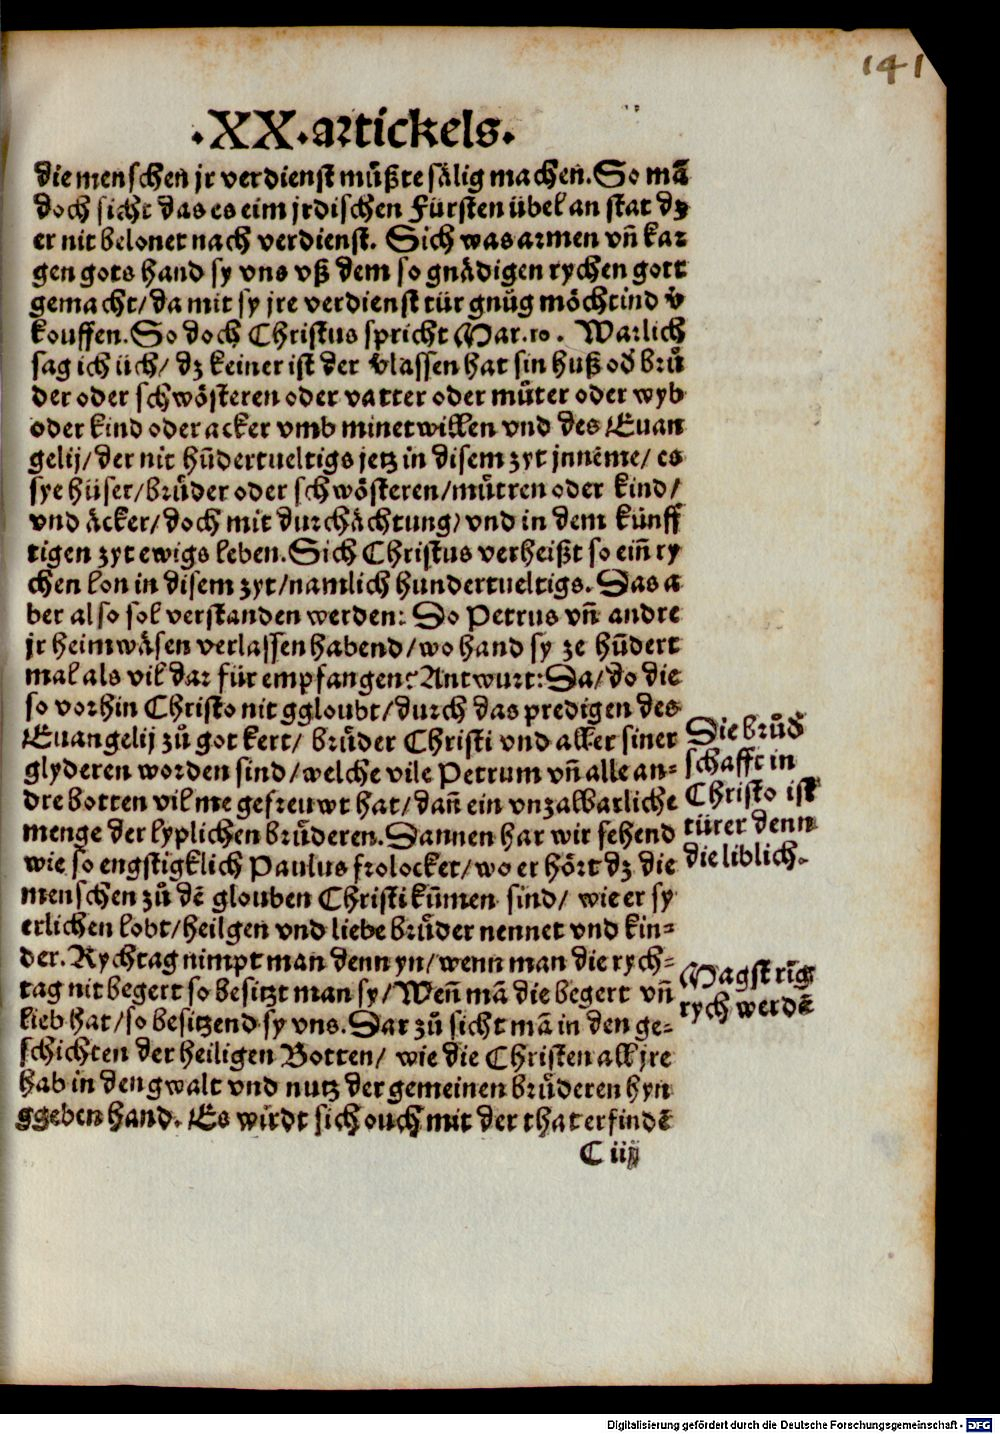 141
.XX.artickels.
die menschen jr verdienst můßte sälig machen. So mā
doch sicht das es eim jrdischen Fürsten übel an stat dz
er nit belonet nach verdienst. Sich was armen vñ kar
gen gots hand sy vns vß dem so gnädigen rychen gott
gemacht/ da mit sy jre verdienst tür gnůg möchtind v̄
kouffen. So doch Christus spricht Mar.10. Warlich
sag ich üch/ dz keiner ist der v̄lassen hat sin huß od̄ brů
der oder schwösteren oder vatter oder můter oder wyb
oder kind oder acker vmb minet willen vnd des Euan
gelij/ der nit hūdertueltigs jetz in disem zyt jnnēme/ es
sye hüser/ brůder oder schwösteren/ můtren oder kind/
vnd äcker/ doch mit durchächtung/ vnd in dem künff
tigen zyt ewigs leben. Sich Christus verheißt so eiñ ry
chen lon in disem zyt/ namlich hundertueltigs. Das a
ber also sol verstanden werden: So Petrus vñ andre
jr heimwäsen verlassen habend/ wo hand sy ze hūdert
mal als vil dar für empfangen? Antwurt: Da/ do die
so vorhin Christo nit ggloubt/ durch das predigen des
Euangelij zů got kert/ brůder Christi vnd aller siner
glyderen worden sind/ welche vile Petrum vñ alle an-
dre botten vil me gefreuwt hat/ dañ ein vnzalbarliche
menge der lyplichen brůderen. Dannen har wir sehend
wie so engstigklich Paulus frolocket/ wo er hört dz die
menschen zů dē glouben Christi kūmen sind/ wie er sy
erlichen lobt/ heilgen vnd liebe brůder nennet vnd kin-
der. Rychtag nimpt man denn yn/ wenn man die rych-
tag nit begert so besitzt man sy/ Weñ mā die begert vñ
lieb hat/ so besitzend sy vns. Dar zů sicht mā in den ge-
schichten der heiligen Botten/ wie die Christen all jre
hab in den gwalt vnd nutz der gemeinen brůderen hyn
ggeben hand. Es wirdt sich ouch mit der that erfindē
C iiij
Die brůd̄
schafft in
Christo ist
türer denn
die liblich.
Magst rīg
rych werdē
Digitalisierung gefördert durch die Deutsche Forschungsgemeinschaft - DFG